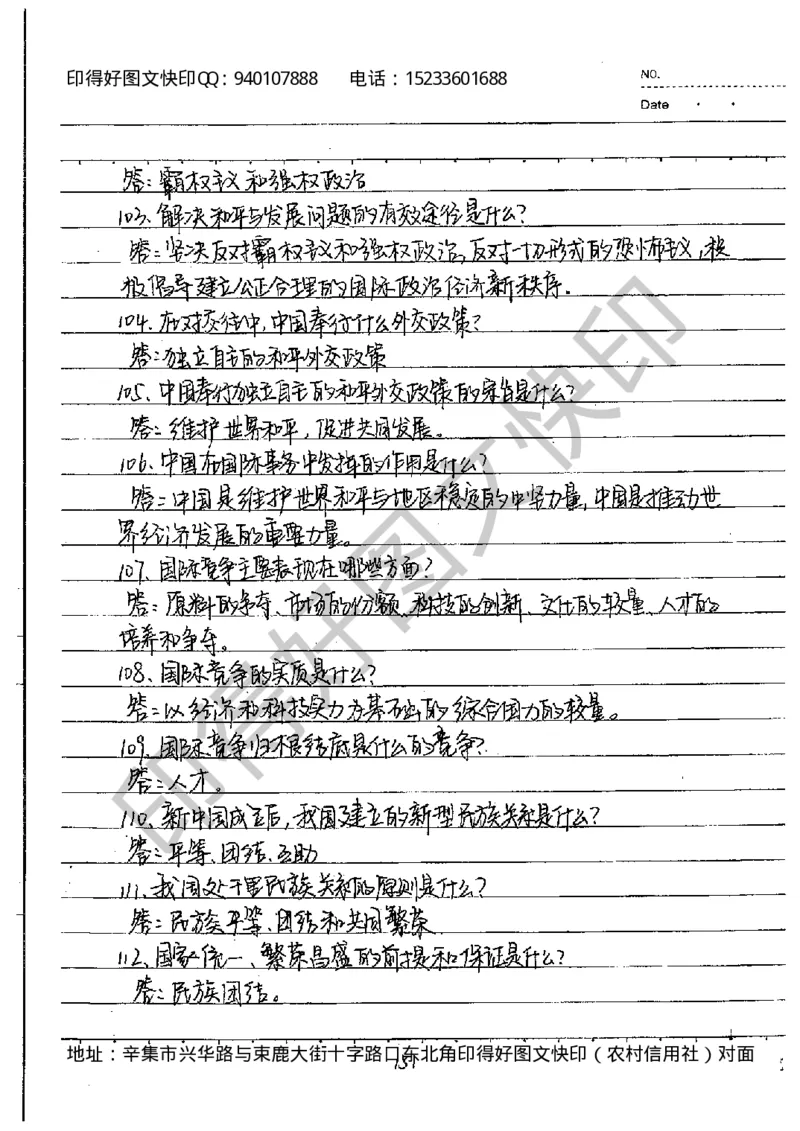 印得好图文快印QQ：940107888 电话：15233601688
NO.
Date
答：霸权主义和强权政治
103、解决和平与发展问题的有效途径是什么？
答：坚决反对霸权主义和强权政治，反对一切形式的恐怖主义，积
极倡导建立公正合理的国际政治经济新秩序。
104、在对交往中，中国奉行什么外交政策？
答：独立自主的和平外交政策
105、中国奉行独立自主的和平外交政策的宗旨是什么？
答：维护世界和平，促进共同发展。
106、中国在国际事务中发挥的作用是什么？
答：中国是维护世界和平与地区稳定的中坚力量，中国是推动世
界经济发展的重要力量。
107、国际竞争主要表现在哪些方面？
答：原料的争夺、市场的份额、科技的创新、文化的较量、人才的
培养和争夺。
108、国际竞争的实质是什么？
答：以经济和科技实力为基础的综合国力的较量。
109、国际竞争归根结底是什么的竞争？
答：人才。
110、新中国成立后，我国建立的新型民族关系是什么？
答：平等、团结、互助
111、我国处于理民族关系的原则是什么？
答：民族平等、团结和共同繁荣
112、国家统一、繁荣昌盛的前提和保证是什么？
答：民族团结。
地址：辛集市兴华路与束鹿大街十字路口东北角印得好图文快印（农村信用社）对面
151
印得好图文快印